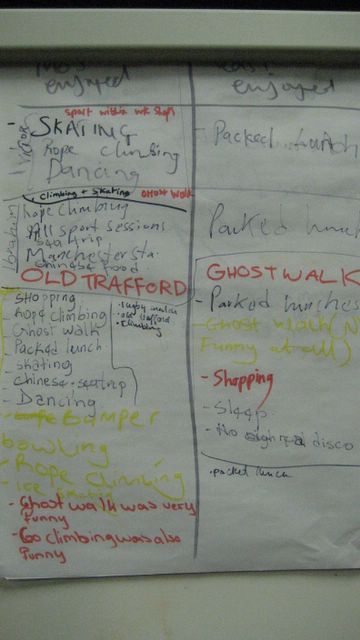 most
enjoyed
sport within wk shops
- SKATING
Rope climbing
Dancing
Climbing + Skating Ghost Walk
Rope climbing
All sport sessions
Manchester Sta.
Chinese food
OLD TRAFFORD
Shopping
Rope climbing
Ghost walk
- Packed lunch
skating
Dancing
Bamper
bowling
- Rope climbing
- ice
- Ghost walk was very
funny
- Go climbing was also
funny
. rugby match
. old trafford
. climbing
least
enjoyed
- Packed lunch
Packed lunch
GHOST WALK
- Packed lunches
- Ghost walk (N
Funny at all)
- Shopping
- Sleep
- No disco
. packet lunch